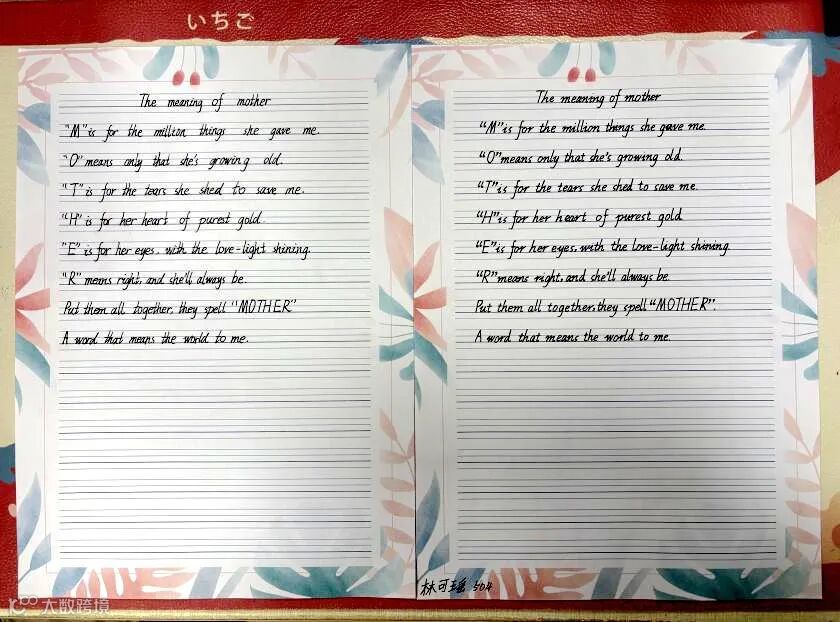 いちご
The meaning of mother
"M" is for the million things she gave me.
"O" means only that she's growing old.
"T" is for the tears she shed to save me.
"H" is for her heart of purest gold.
"E" is for her eyes, with the love-light shining.
"R" means right, and she'll always be.
Put them all together, they spell "MOTHER"
A word that means the world to me.
The meaning of mother
"M" is for the million things she gave me.
"O" means only that she's growing old.
"T" is for the tears she shed to save me.
"H" is for her heart of purest gold.
"E" is for her eyes, with the love-light shining.
"R" means right, and she'll always be.
Put them all together, they spell "MOTHER".
A word that means the world to me.
林可瑶 504
大数跨境